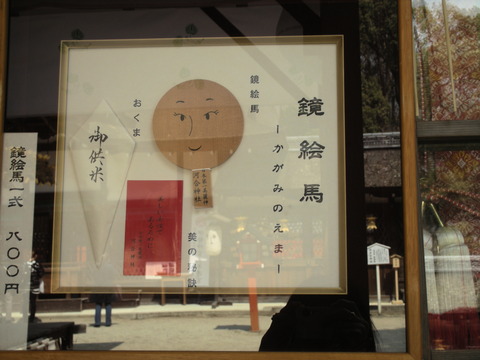 鏡絵馬
ーかがみのえまー
鏡絵馬
おくま
御供米
河合神社
美の秘訣
鏡絵馬一式 八〇〇円